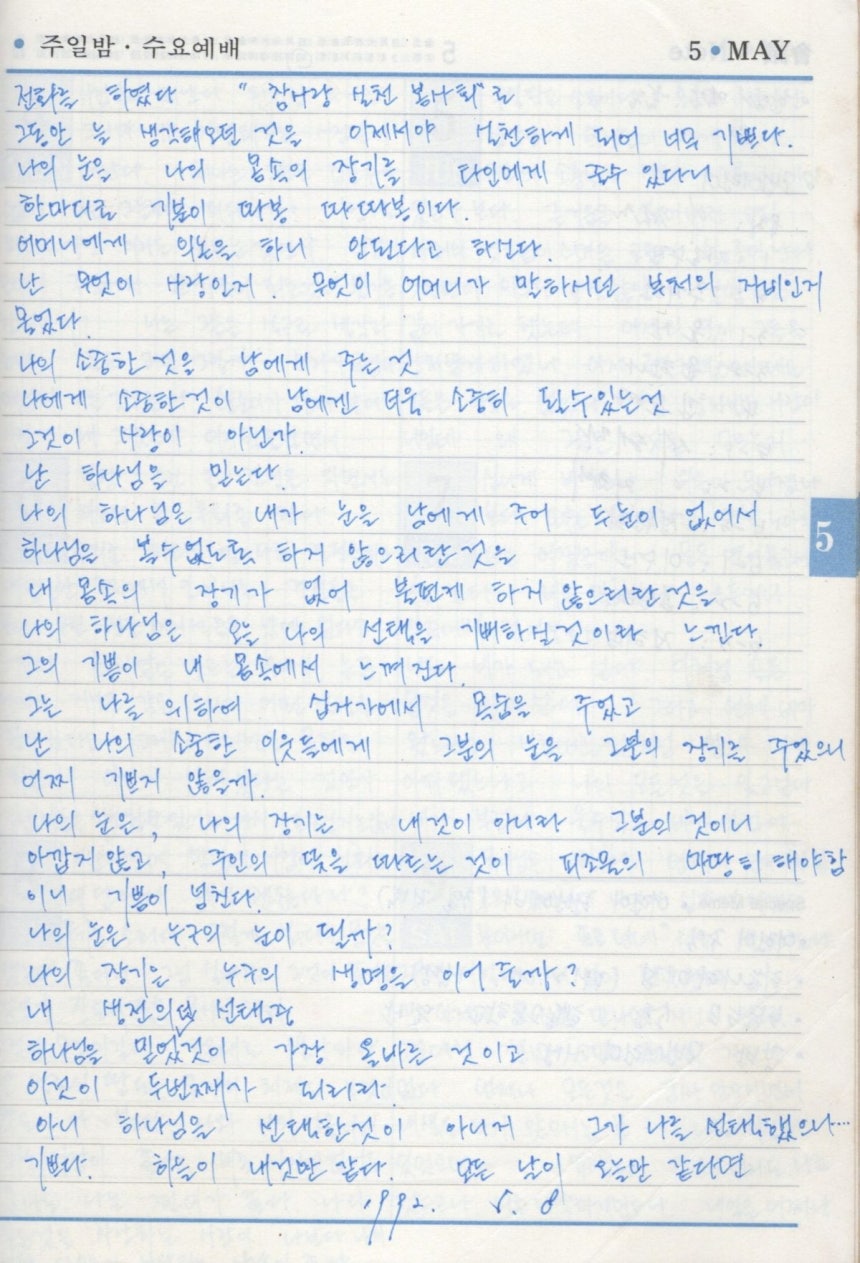 • 주일밤 · 수요예배
5 • MAY
전화를 하였다 " 참사랑 실천 봉사회"로
그동안 늘 생각해오던 것을 이제서야 실천하게 되어 너무 기쁘다.
나의 눈을 나의 몸속의 장기를 타인에게 줄수 있다니
한마디로 기분이 따봉 따따봉이다.
어머니에게 의논을 하니 안된다고 하신다.
난 무엇이 사랑인지. 무엇이 어머니가 말하시던 부처의 자비인지
물었다.
나의 소중한 것을 남에게 주는 것
나에게 소중한것이 남에겐 더욱 소중히 될수있는것
그것이 사랑이 아닌가.
난 하나님을 믿는다.
나의 하나님은 내가 눈을 남에게 주어 두눈이 없어서
하나님을 볼수없도록 하지 않으리란것을
내 몸속의 장기가 없어 불편케 하지 않으리란것을
나의 하나님은 오늘 나의 선택을 기뻐하실것이라 느낀다.
그의 기쁨이 내 몸속에서 느껴진다.
그는 나를 위하여 십자가에서 목숨을 주었고
난 나의 소중한 이웃들에게 그분의 눈을 그분의 장기를 주었으니
어찌 기쁘지 않을까.
나의 눈은, 나의 장기는 내것이 아니라 그분의 것이니
아깝지않고, 주인의 뜻을 따르는 것이 피조물의 마땅히 해야함
이니 기쁨이 넘친다.
나의 눈은 누구의 눈이 될까?
나의 장기는 누구의 생명을 이어줄까?
내 생전의 선택관
하나님을 믿었것이 가장 올바른 것이고
이것이 두번째가 되리라.
아니 하나님을 선택한것이 아니지 그가 나를 선택했으니…
기쁘다. 하늘이 내것만 같다. 모든 날이 오늘만 같다면
1992. 5. 8
5